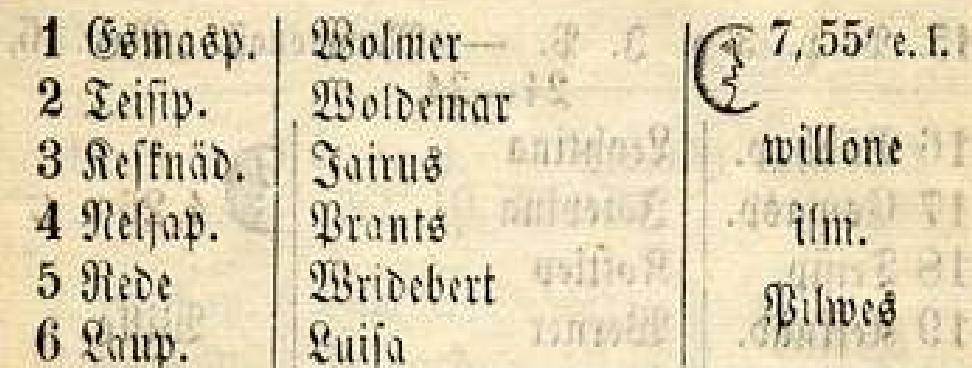 1 Esmasp. Wolmer 7, 55' e. l.
2 Teisip. Woldemar
3 Kesknäd. Jairus willone
4 Neljap. Prants ilm.
5 Rede Wridebert Pilwes
6 Laup. Luisa